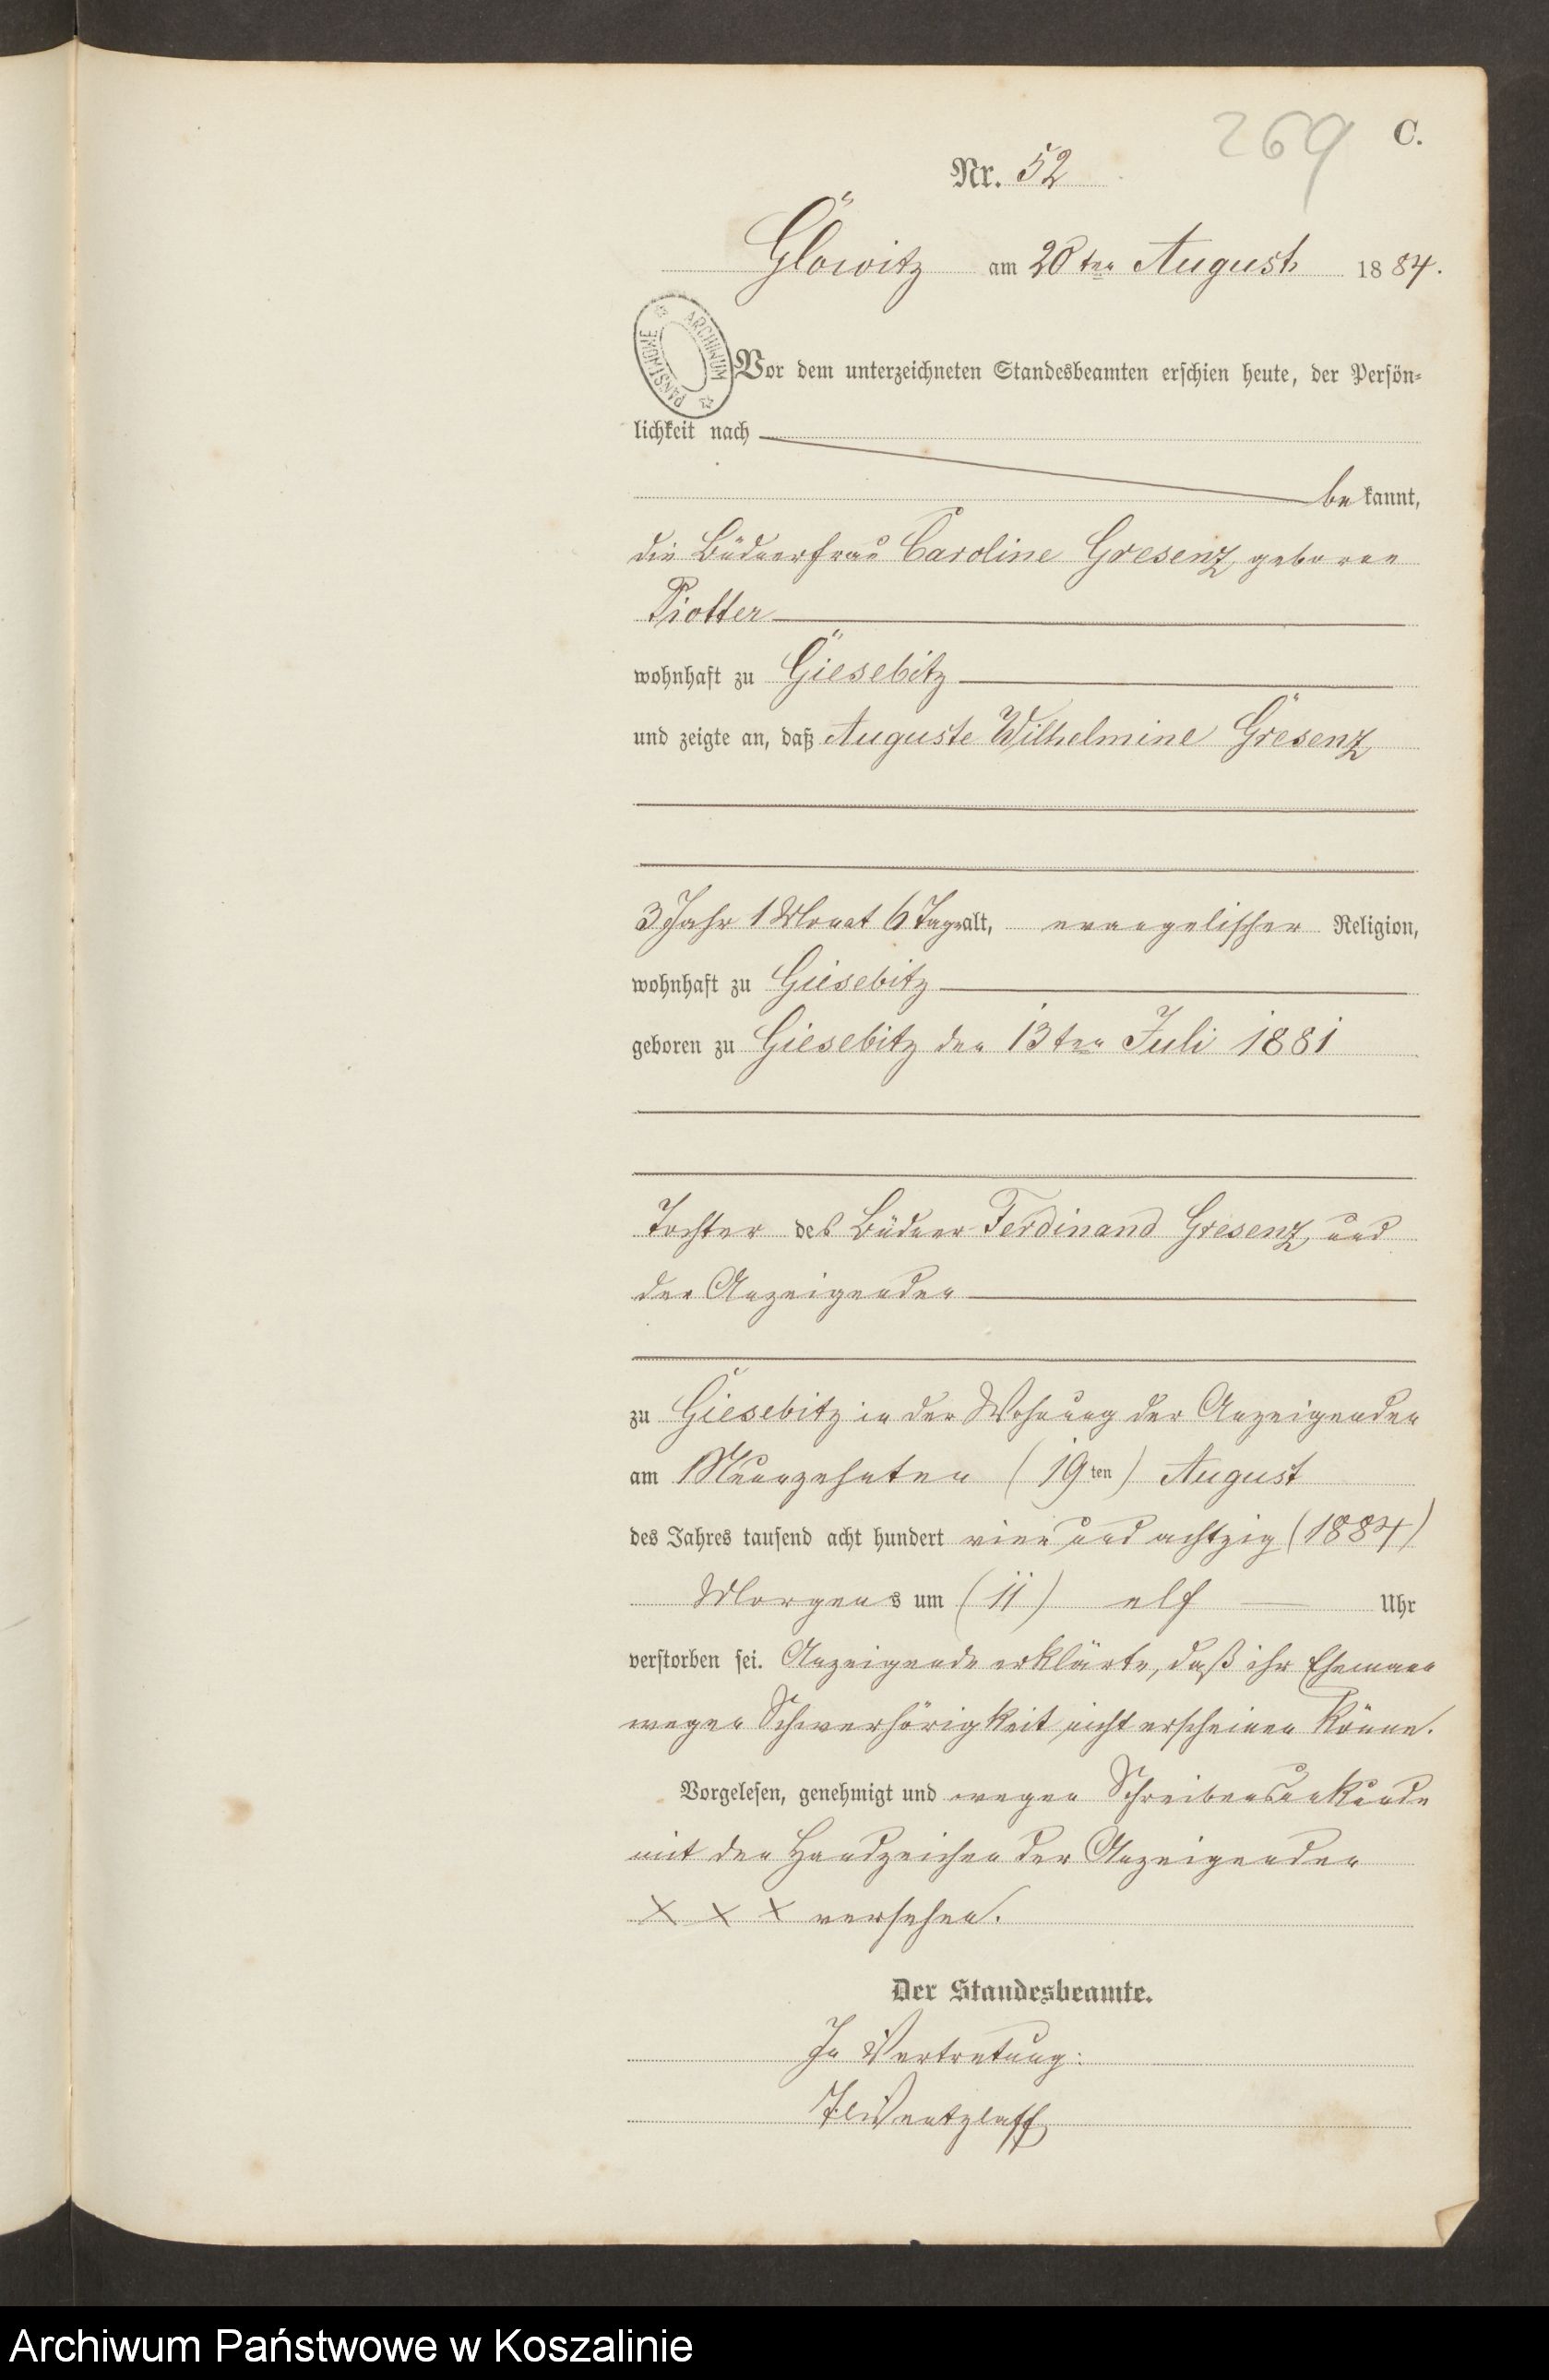 269 C.
Nr. 52
Glowitz am 20ten August 1884.
ARCHIWUM PAŃSTWOWE
Vor dem unterzeichneten Standesbeamten erschien heute, der Persön-
lichkeit nach
bekannt,
die Büdnerfrau Caroline Gresenz, geboren
Piotter
wohnhaft zu Giesebitz
und zeigte an, daß Auguste Wilhelmine Gresenz
3 Jahr 1 Monat 6 Tage alt, evangelischer Religion,
wohnhaft zu Giesebitz
geboren zu Giesebitz den 13ten Juli 1881
Tochter des Büdner Ferdinand Gresenz und
der Anzeigenden
zu Giesebitz in der Wohnung der Anzeigenden
am Neunzehnten (19ten) August
des Jahres tausend acht hundert vier und achtzig (1884)
Morgens um (11) elf Uhr
verstorben sei. Anzeigende erklärte, daß ihr Ehemann
wegen Schwerhörigkeit nicht erscheinen könne.
Vorgelesen, genehmigt und wegen Schreibensunkunde
mit den Handzeichen der Anzeigenden
X X X versehen.
Der Standesbeamte.
In Vertretung:
Wentzlaff
Archiwum Państwowe w Koszalinie